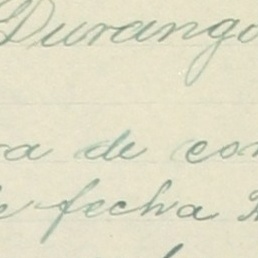 Durango
ra de con
de fecha